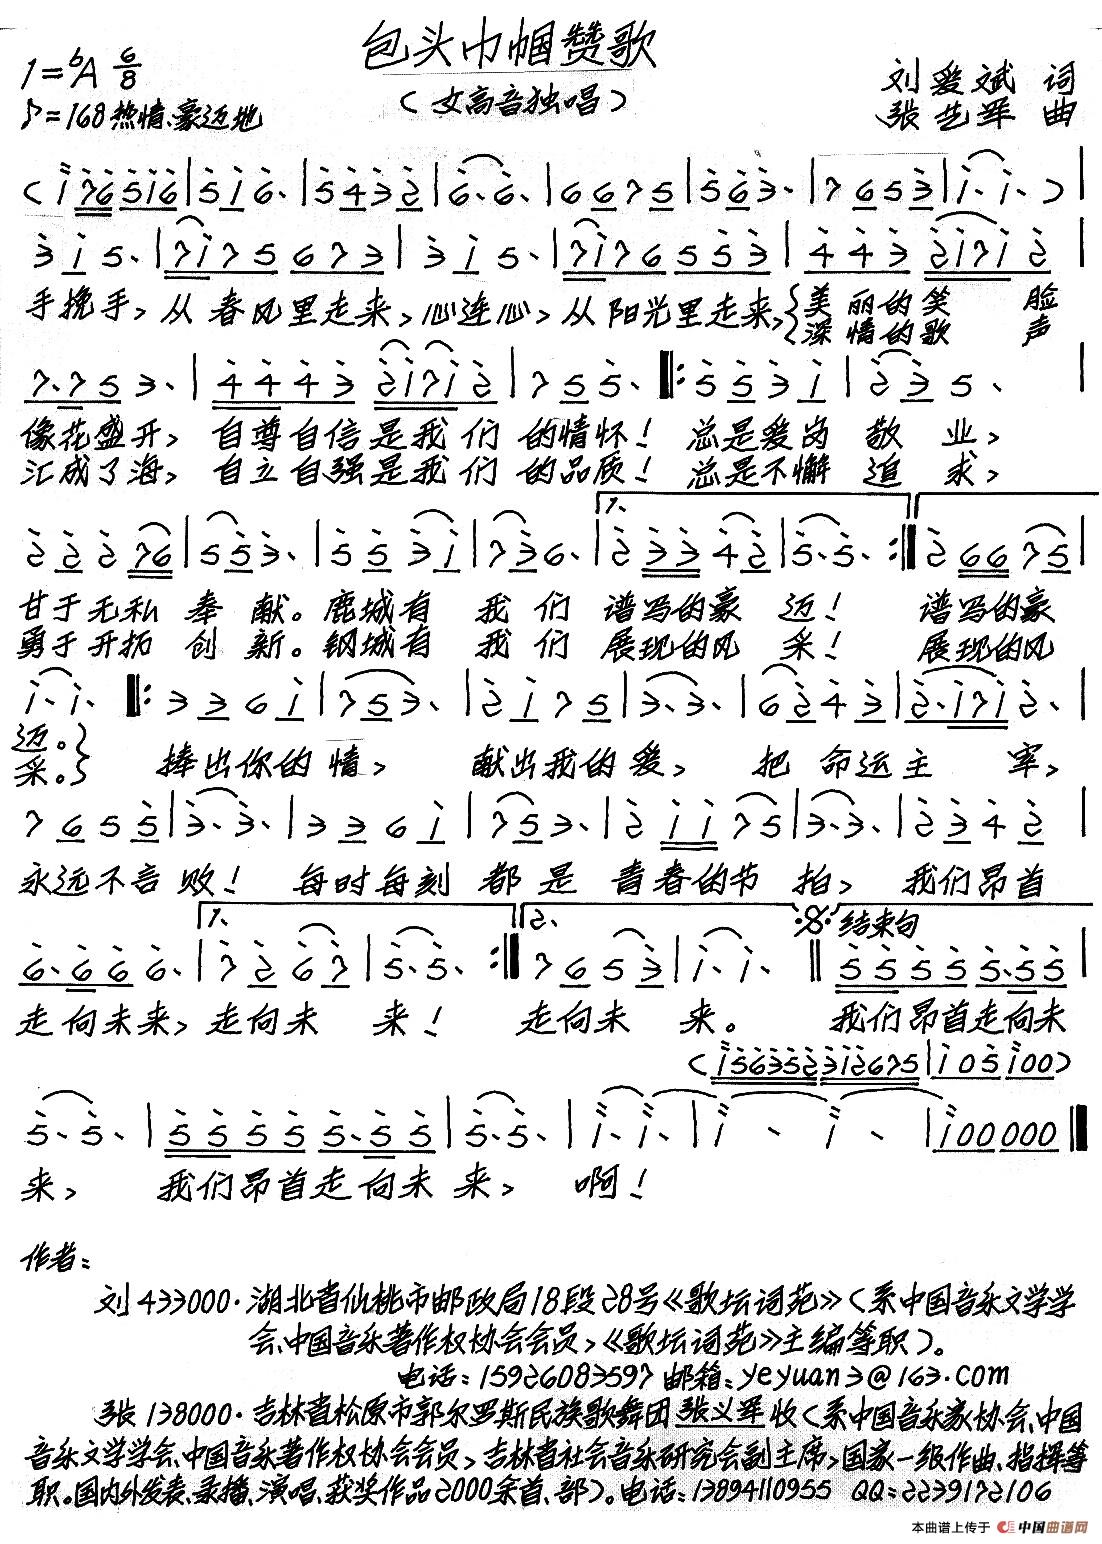 包头巾帼赞歌
1=ᵇA 6/8
（女高音独唱）
刘爱斌 词
♪=168 热情、豪迈地
张艺军 曲
手挽手，从春风里走来，心连心，从阳光里走来，美丽的笑脸
深情的歌声
像花盛开，自尊自信是我们的情怀！总是爱岗敬业，
汇成了海，自立自强是我们的品质！总是不懈追求，
1、
甘于无私奉献。鹿城有我们谱写的豪迈！谱写的豪
勇于开拓创新。钢城有我们展现的风采！展现的风
迈。
采。
捧出你的情，献出我的爱，把命运主宰，
永远不言败！每时每刻都是青春的节拍，我们昂首
1、
2、
结束句
走向未来，走向未来！走向未来。我们昂首走向未
来，我们昂首走向未来，啊！
作者：
刘 433000·湖北省仙桃市邮政局18段28号《歌坛词苑》（系中国音乐文学学
会、中国音乐著作权协会会员，《歌坛词苑》主编等职）。
电话：15926083597 邮箱：yeyuan3@163.com
张 138000·吉林省松原市郭尔罗斯民族歌舞团张义军收（系中国音乐家协会、中国
音乐文学学会、中国音乐著作权协会会员，吉林省社会音乐研究会副主席，国家一级作曲、指挥等
职。国内外发表、录播、演唱、获奖作品2000余首、部）。电话：13894110955 QQ：2239172106
本曲谱上传于 中国曲谱网